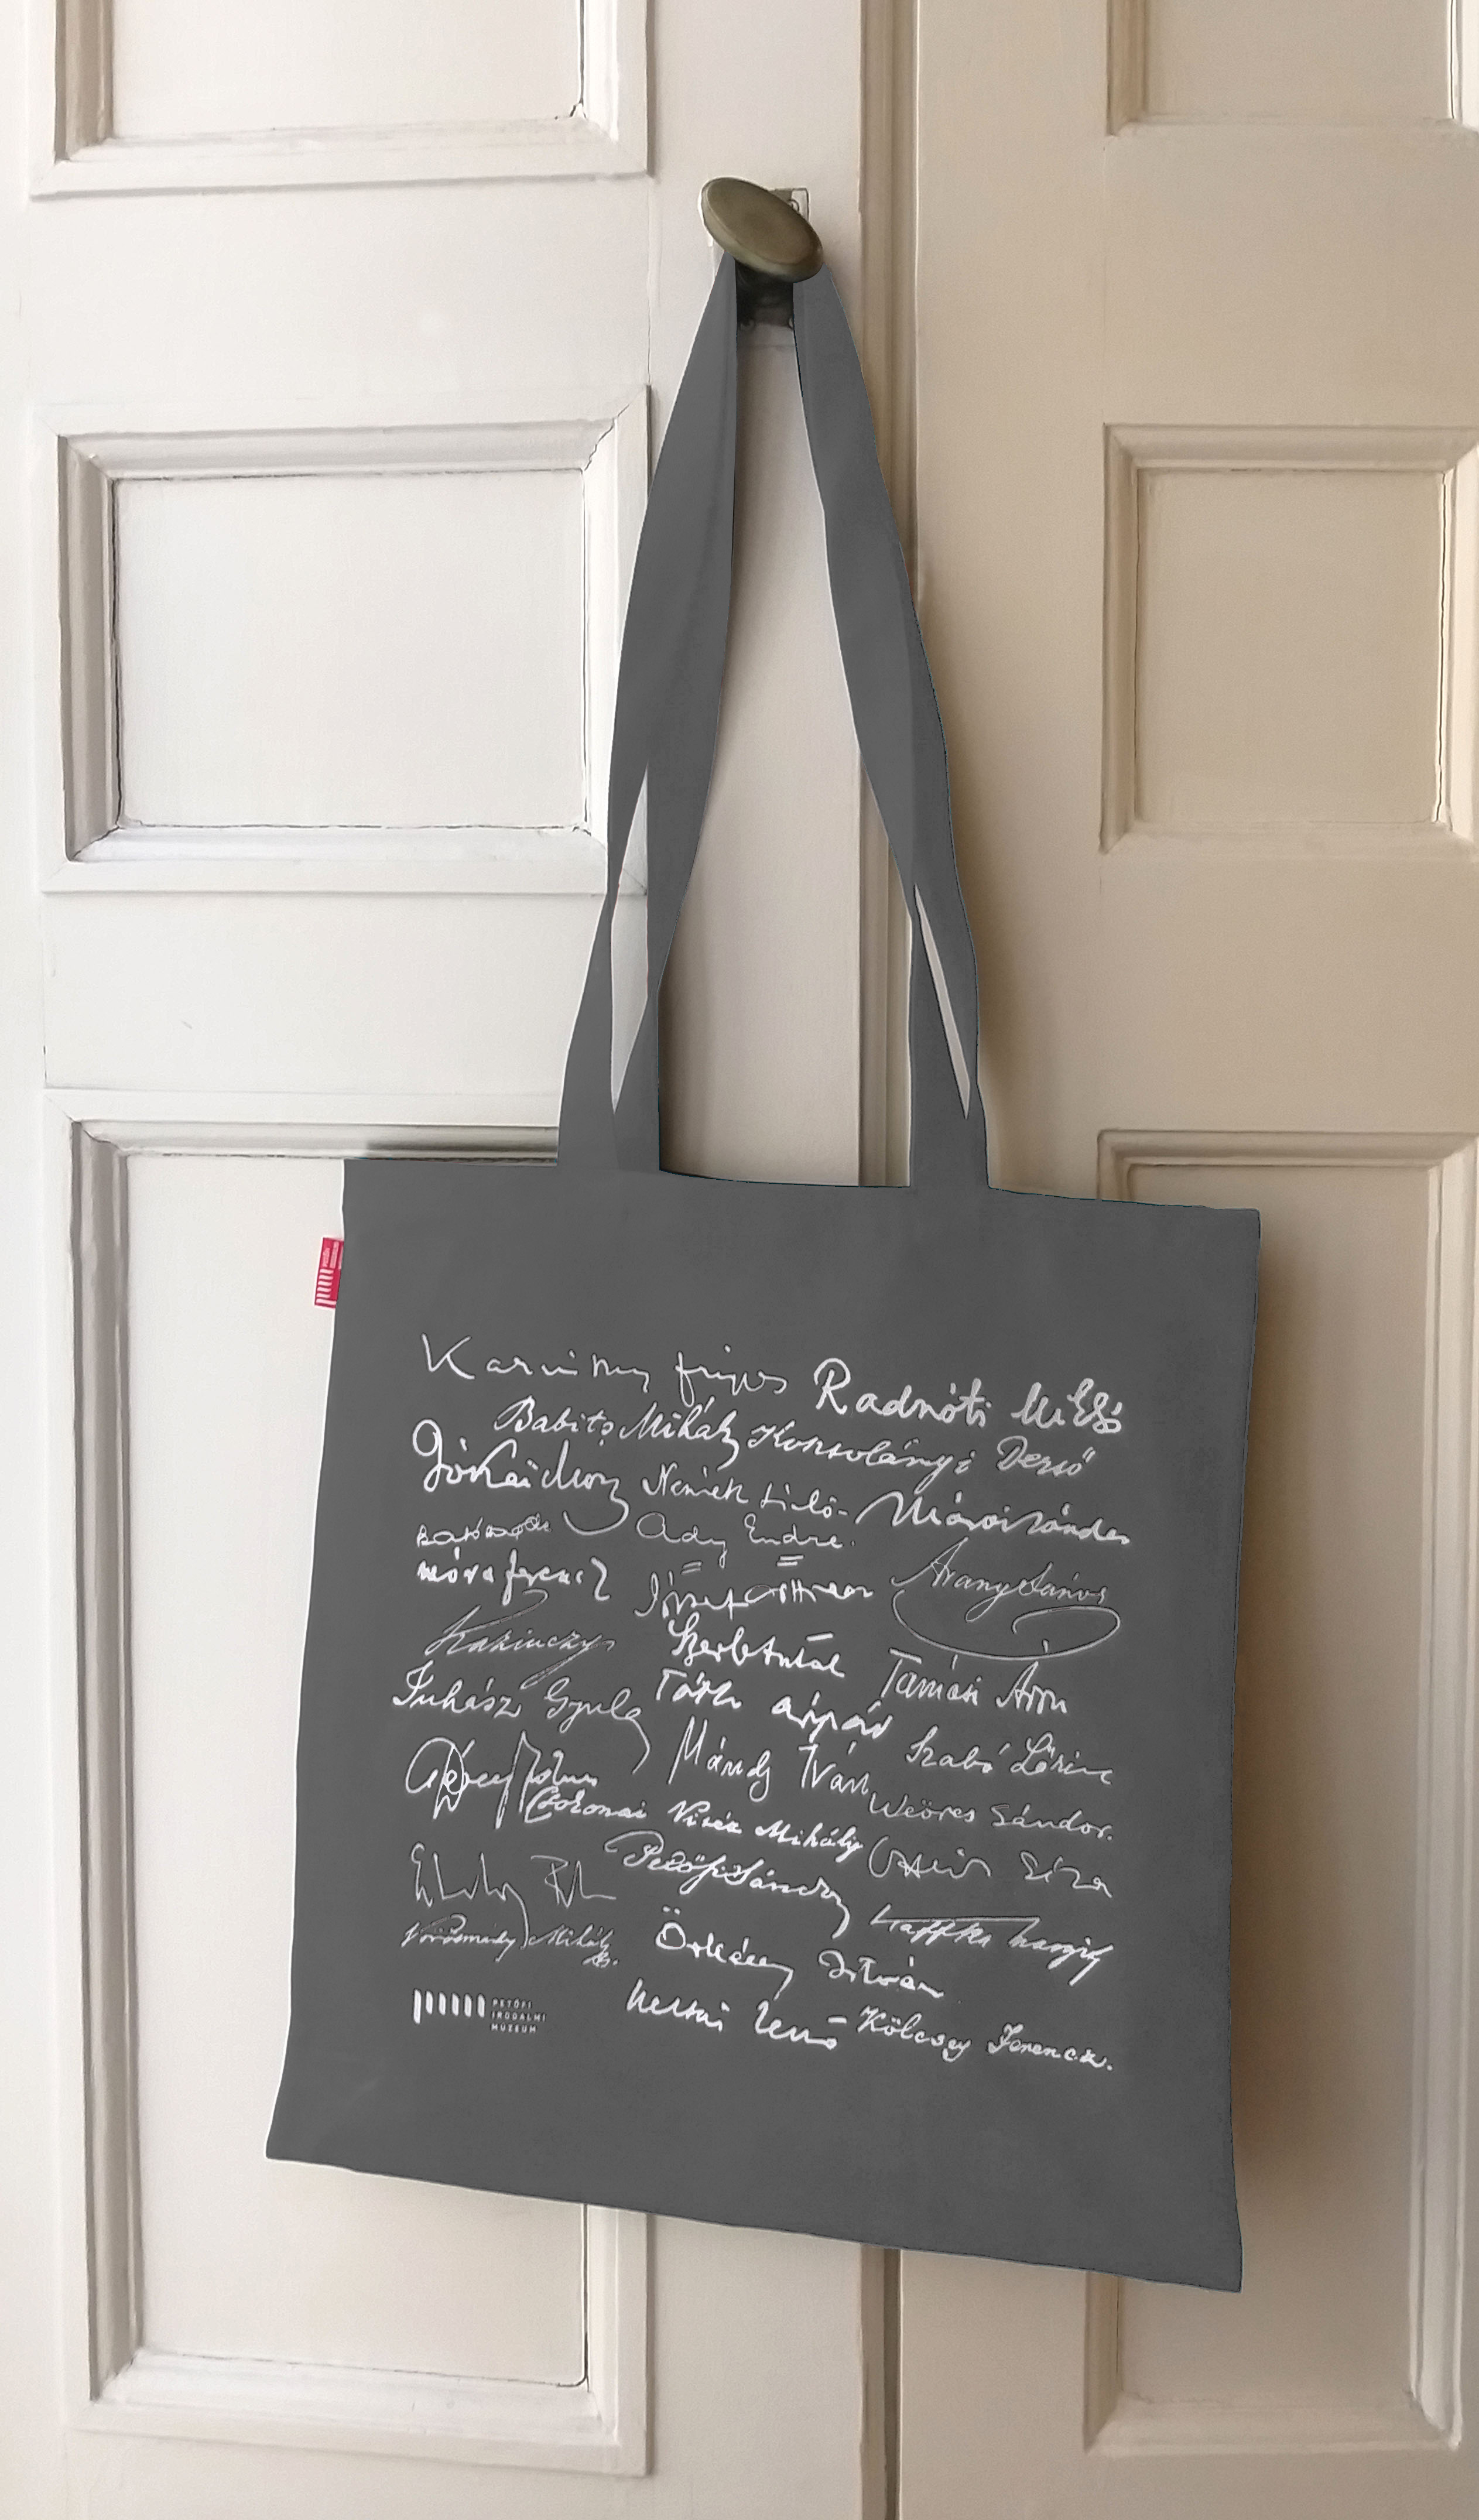 Karinthy Frigyes Radnóti Miklós
Babits Mihály Kosztolányi Dezső
Jókai Mór Németh László Márai Sándor
Ady Endre.
móra ferenc József Attila Arany János
Kazinczy Szerb Antal Tamási Áron
Juhász Gyula Tóth Árpád Szabó Lőrinc
Mándy Iván Weöres Sándor.
Csokonai Vitéz Mihály
Petőfi Sándor Kaffka Margit
Vörösmarty Mihály Örkény István
Kölcsey Ferencz.
PETŐFI
IRODALMI
MÚZEUM